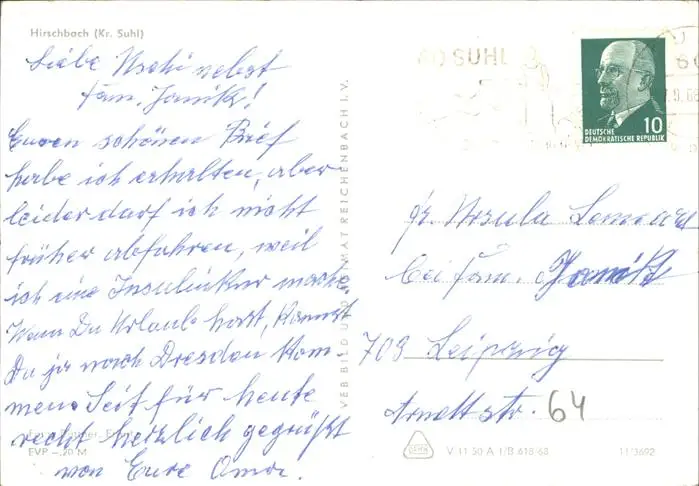 Hirschbach (Kr. Suhl)
Liebe Uschi nebst
Fam. Janik!
Euren schönen Brief
habe ich erhalten, aber
leider darf ich nicht
früher abfahren, weil
ich eine Insulinkur mache.
Wenn Du Urlaub hast, kannst
Du ja nach Dresden kom-
men. Seit für heute
recht herzlich gegrüßt
von Eure Omi.
EVP –,20 M
VEB BILD UND HEIMAT REICHENBACH I. V.
SUHL
DEUTSCHE
DEMOKRATISCHE REPUBLIK
10
Fr. Ursula
bei Fam. Janik
703 Leipzig
Arndtstr. 64
V 11 50 A 1/B 618/68
11/3692